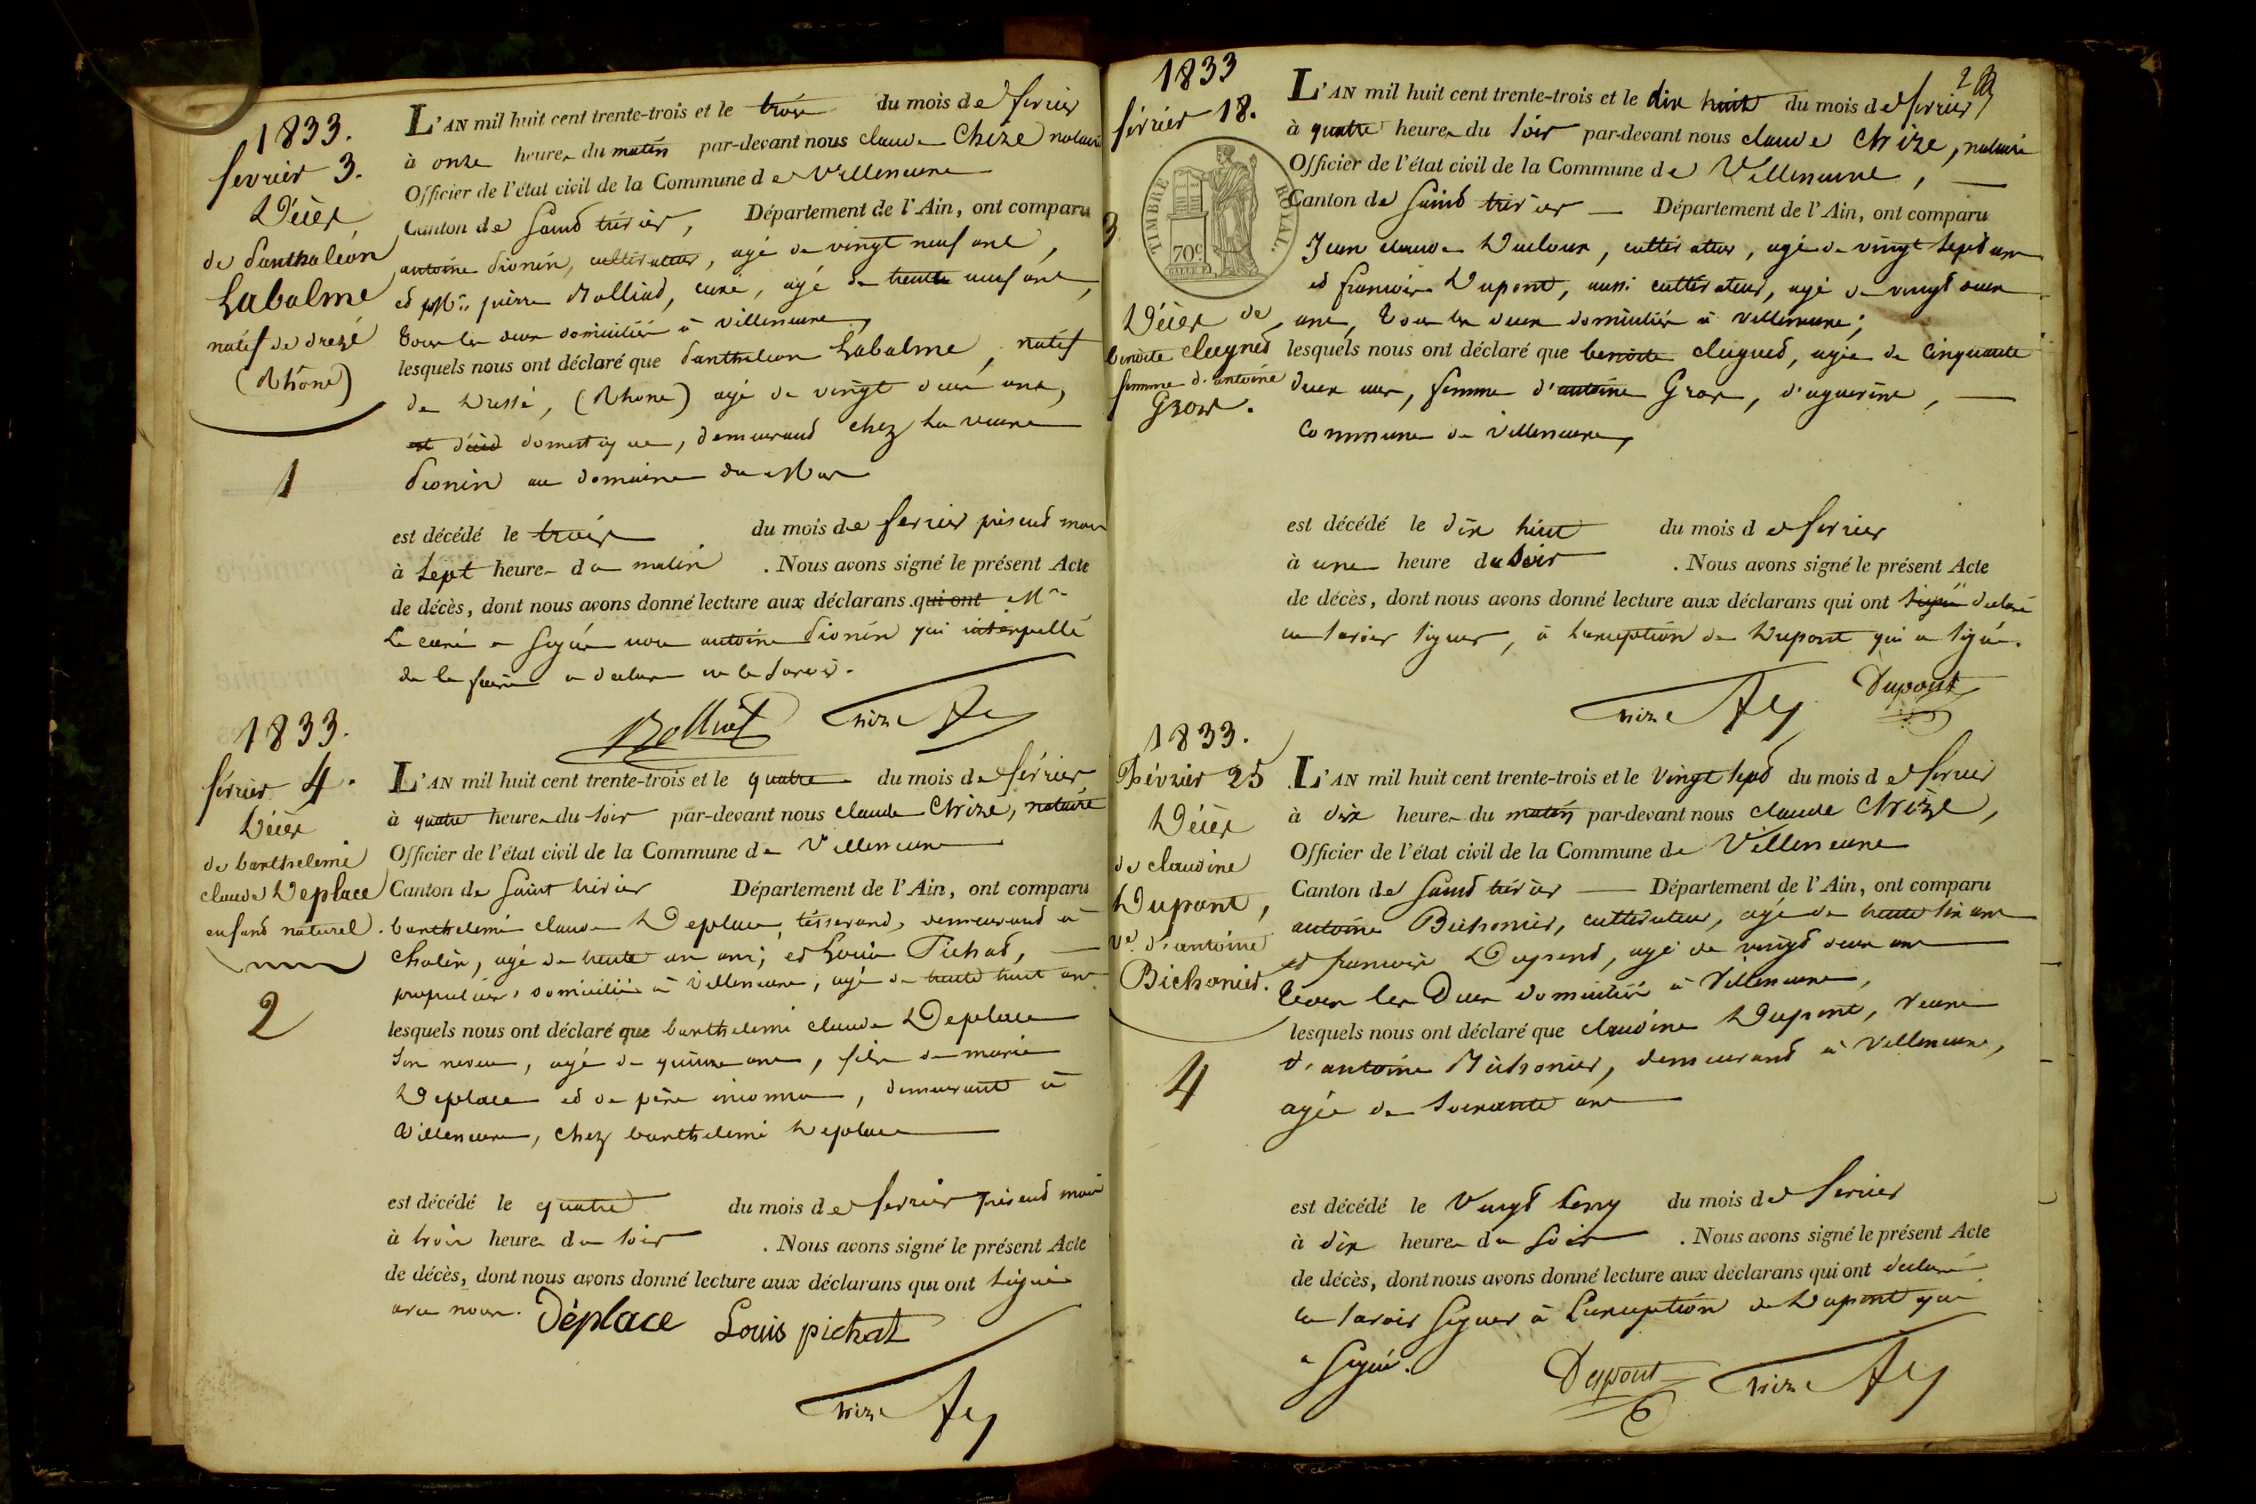 1833.
fevrier 3.
Décès
de Panthaléon
Labalme
natif de drezé
(Rhône)
1
L'AN mil huit cent trente-trois et le trois du mois de fevrier
à onze heures du matin par-devant nous claude Chize notaire
Officier de l'état civil de la Commune de Villeneuve
Canton de Saint trivier, Département de l'Ain, ont comparu
antoine Pionin, cultivateur, agé de vingt neuf ans,
et Mr. pierre Rolliat, curé, agé de trente neuf ans,
Tous les deux domiciliés à villeneuve,
lesquels nous ont déclaré que Panthaleon Labalme, natif
de Dressé, (Rhone) agé de vingt deux ans,
est décéd domestique, demeurant chez La veuve
Pionin au domaine du Mas
est décédé le trois du mois de fevrier présent mois
à sept heures du matin . Nous avons signé le présent Acte
de décès, dont nous avons donné lecture aux déclarans qui ont Mr
Le curé a signé non antoine Pionin qui interpellé
de le faire a déclaré ne le savoir.
Rolliat Chize
1833.
février 4.
Décès
de barthelemi
claude Deplace
enfant naturel.
2
L'AN mil huit cent trente-trois et le quatre du mois de février
à quatre heures du soir par-devant nous claude Chize, notaire
Officier de l'état civil de la Commune de Villeneuve
Canton de Saint trivier Département de l'Ain, ont comparu
barthelemi claude Deplace, tisserand, demeurant à
Chalein, agé de trente un ans; et Louis Pichat,
propriétaire, domicilié à Villeneuve, agé de trente huit ans
lesquels nous ont déclaré que barthelemi claude Deplace
son neveu, agé de quinze ans, fils de marie
Deplace et de père inconnu, demeurant à
Villeneuve, chez barthelemi Deplace
est décédé le quatre du mois de fevrier présent mois
à trois heures du soir . Nous avons signé le présent Acte
de décès, dont nous avons donné lecture aux déclarans qui ont signé
avec nous. Déplace Louis pichat
Chize
1833
février 18.
3
TIMBRE ROYAL.
70c
Décès de
benoite clugnet
femme d'antoine
Gros.
L'AN mil huit cent trente-trois et le dix huit du mois de fevrier
à quatre heures du soir par-devant nous claude Chize, notaire
Officier de l'état civil de la Commune de Villeneuve,
Canton de Saint trivier Département de l'Ain, ont comparu
Jean claude Duclour, cultivateur, agé de vingt sept ans
et françois Dupont, aussi cultivateur, agé de vingt deux
ans, Tous les deux domiciliés à villeneuve;
lesquels nous ont déclaré que benoite clugnet, agée de cinquante
deux ans, femme d'antoine Gros, d'aguerine,
commune de villeneuve,
est décédé le dix huit du mois de fevrier
à une heure du soir . Nous avons signé le présent Acte
de décès, dont nous avons donné lecture aux déclarans qui ont signé declaré
ne savoir signer, à l'exception de Dupont qui a signé.
Chize Dupont
1833.
Février 25
Décès
de claudine
Dupont,
ve. d'antoine
Bichonier.
4
L'AN mil huit cent trente-trois et le vingt sept du mois de fevrier
à dix heures du matin par-devant nous claude Chize,
Officier de l'état civil de la Commune de Villeneuve
Canton de Saint trivier Département de l'Ain, ont comparu
antoine Bichonier, cultivateur, agé de trente six ans
et françois Dupont, agé de vingt deux ans
Tous les Deux domiciliés à Villeneuve,
lesquels nous ont déclaré que claudine Dupont, veuve
d'antoine Bichonier, demeurant à Villeneuve,
agée de soixante ans
est décédé le Vingt cinq du mois de fevrier
à dix heures du soir . Nous avons signé le présent Acte
de décès, dont nous avons donné lecture aux déclarans qui ont declaré
ne savoir signer à l'exception de Dupont qui
a signé.
Dupont Chize